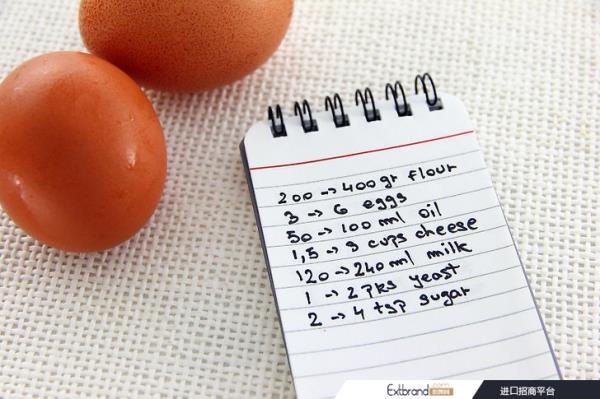 200 → 400 gr flour
3 → 6 eggs
50 → 100 ml oil
1,5 → 3 cups cheese
120 → 240 ml milk
1 → 2 pks yeast
2 → 4 tsp sugar
Extbrand.com
进口招商平台